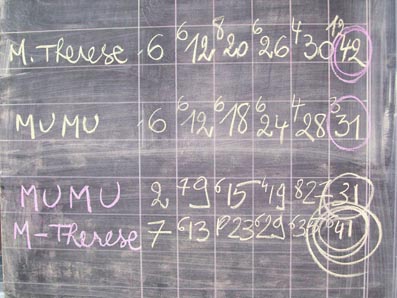 M. Therese - 6 6 12 8 20 6 26 4 30 12 42
MUMU - 6 6 12 6 18 6 24 4 28 3 31
MUMU 2 7 9 6 15 4 19 8 27 31
M-Therese 7 6 13 23 6 29 6 41